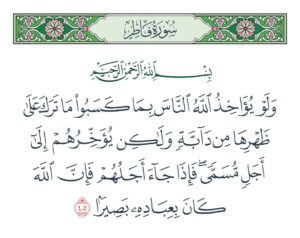 سُورَةُ فَاطِرٍ
بِسْمِ اللَّهِ الرَّحْمَٰنِ الرَّحِيمِ
وَلَوْ يُؤَاخِذُ اللَّهُ النَّاسَ بِمَا كَسَبُوا مَا تَرَكَ عَلَىٰ
ظَهْرِهَا مِن دَابَّةٍ وَلَٰكِن يُؤَخِّرُهُمْ إِلَىٰ
أَجَلٍ مُّسَمًّى ۖ فَإِذَا جَاءَ أَجَلُهُمْ فَإِنَّ اللَّهَ
كَانَ بِعِبَادِهِ بَصِيرًا ٤٥